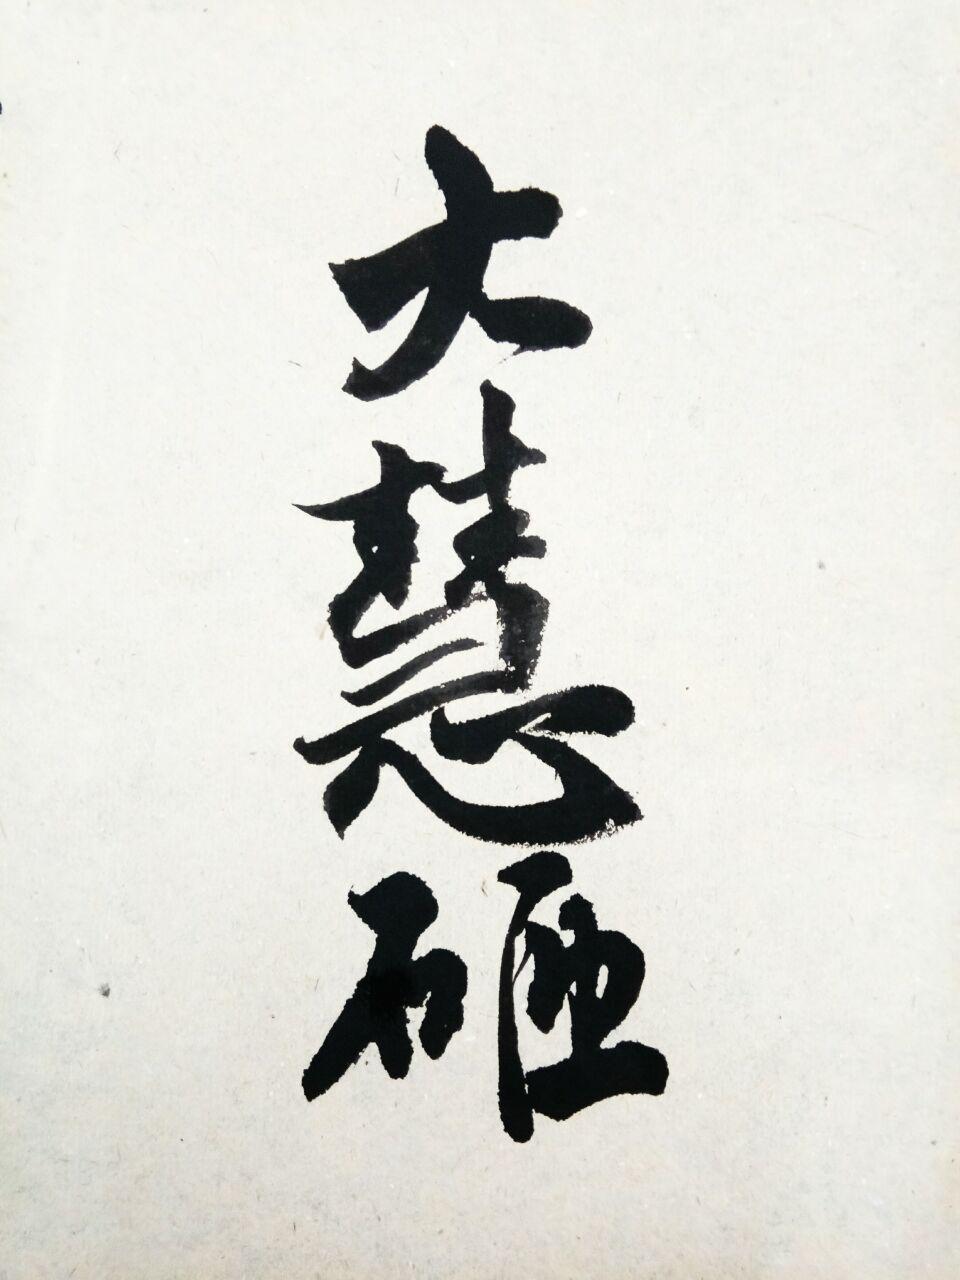 大慧砸